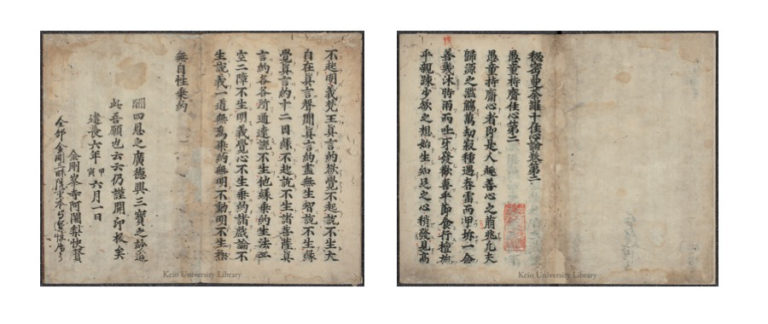 秘密曼荼羅十住心論卷第二
愚童持齋住心第二
愚童持齋心者即是人趣善心之萠兆凡夫
歸源之濫觴萬劫寂種遇春雷而甲坼一念
善幾沐時雨而吐牙發歡喜乎節食行檀施
乎親疎少欲之想始生知足之心稍發見高
Keio University Library
不起明義梵王真言約覺不起說不生大
自在真言聲聞真言約盡無生智說不生緣
覺真言約十二因緣不起說不生諸菩薩真
言約各各所通達說不生他緣乘約生法二
空二障不生明義覺心不生乘約諸戲論不
生說義一道無為乘約無明不動明不生極
無自性乘約
酬四恩之廣德興三寶之妙道
此善願也云云仍謹開印板矣
建長六年甲寅六月一日
金剛峯寺阿闍梨快賢
Keio University Library